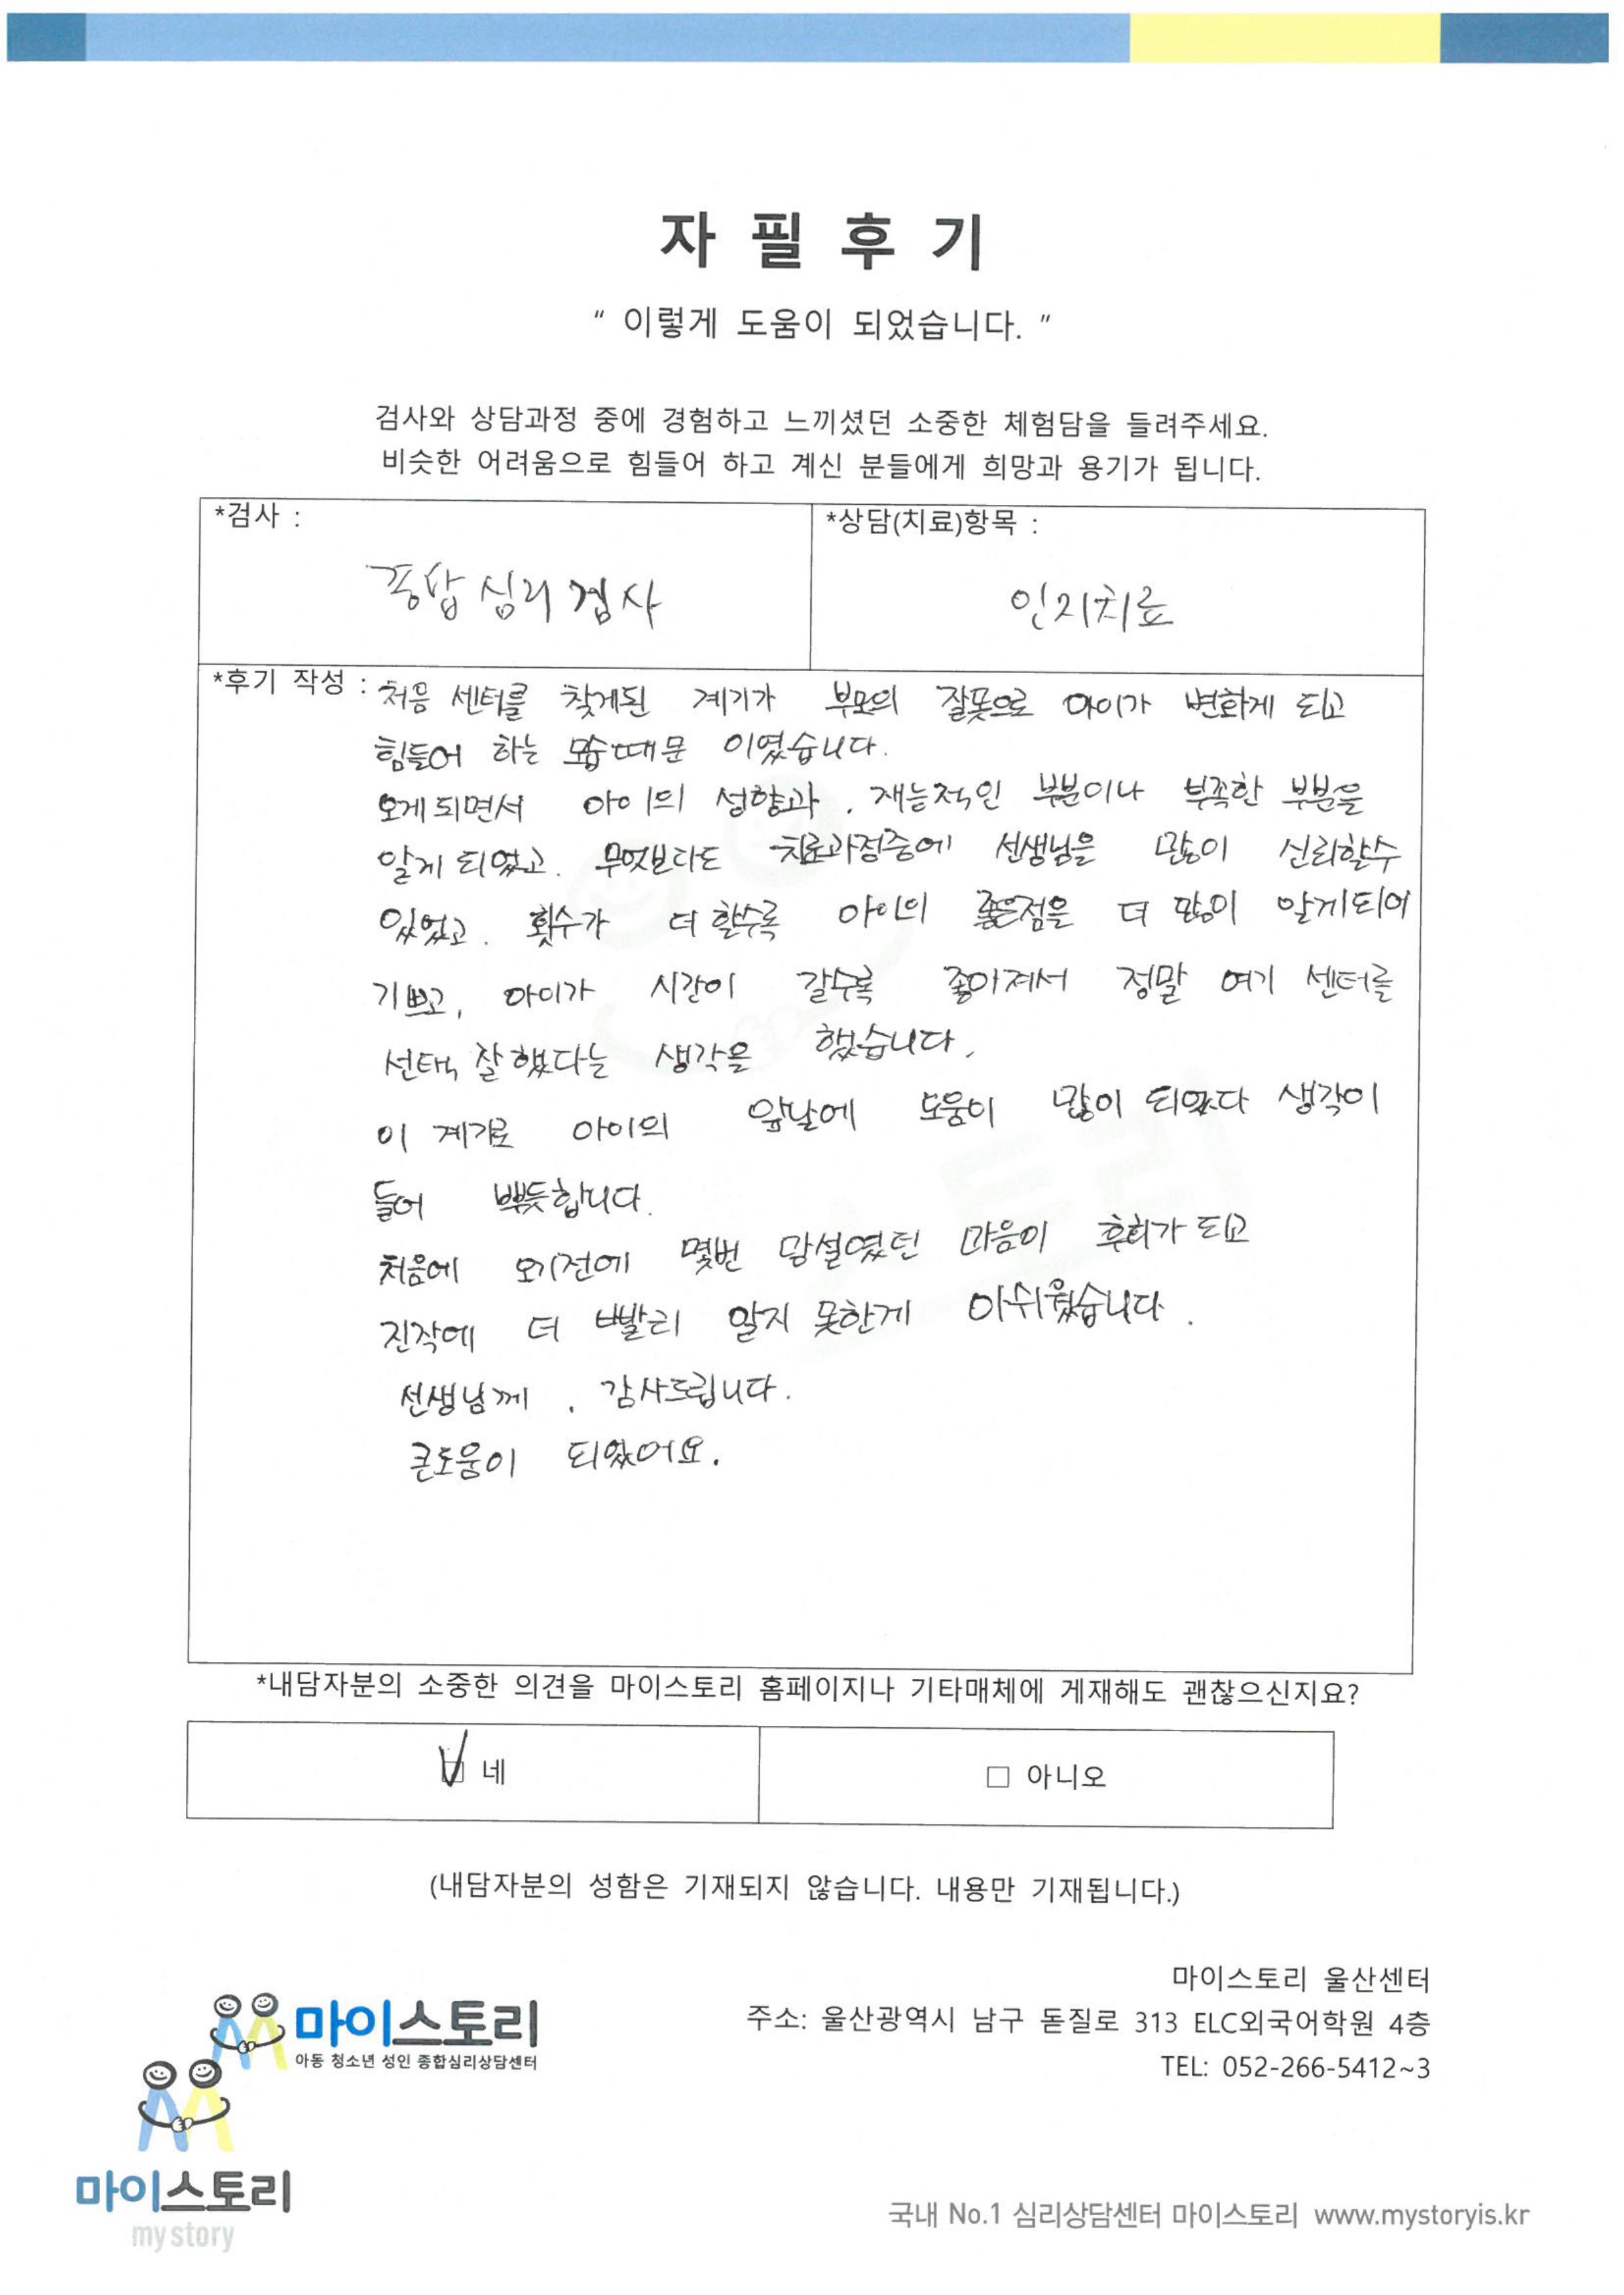 자 필 후 기
“ 이렇게 도움이 되었습니다. ”
검사와 상담과정 중에 경험하고 느끼셨던 소중한 체험담을 들려주세요.
비슷한 어려움으로 힘들어 하고 계신 분들에게 희망과 용기가 됩니다.
*검사 :
종합심리검사
*상담(치료)항목 :
인지치료
*후기 작성 : 처음 센터를 찾게된 계기가 부모의 잘못으로 아이가 변화게 되고
힘들어 하는 모습때문 이였습니다.
오게되면서 아이의 성향과, 재능적인 부분이나 부족한 부분을
알게 되었고. 무엇보다도 치료과정중에 선생님을 많이 신뢰할수
있었고. 횟수가 더 할수록 아이의 좋은점을 더 많이 알게되어
기쁘고, 아이가 시간이 갈수록 좋아져서 정말 여기 센터를
선택 잘했다는 생각을 했습니다.
이 계기로 아이의 앞날에 도움이 많이 되었다 생각이
들어 뿌듯합니다.
처음에 오기전에 몇번 망설였던 마음이 후회가 되고
진작에 더 빨리 알지 못한게 아쉬웠습니다.
선생님께, 감사드립니다.
큰도움이 되었어요.
*내담자분의 소중한 의견을 마이스토리 홈페이지나 기타매체에 게재해도 괜찮으신지요?
□ 네
□ 아니오
(내담자분의 성함은 기재되지 않습니다. 내용만 기재됩니다.)
마이스토리
아동 청소년 성인 종합심리상담센터
마이스토리 울산센터
주소: 울산광역시 남구 돋질로 313 ELC외국어학원 4층
TEL: 052-266-5412~3
마이스토리
my story
국내 No.1 심리상담센터 마이스토리 www.mystoryis.kr